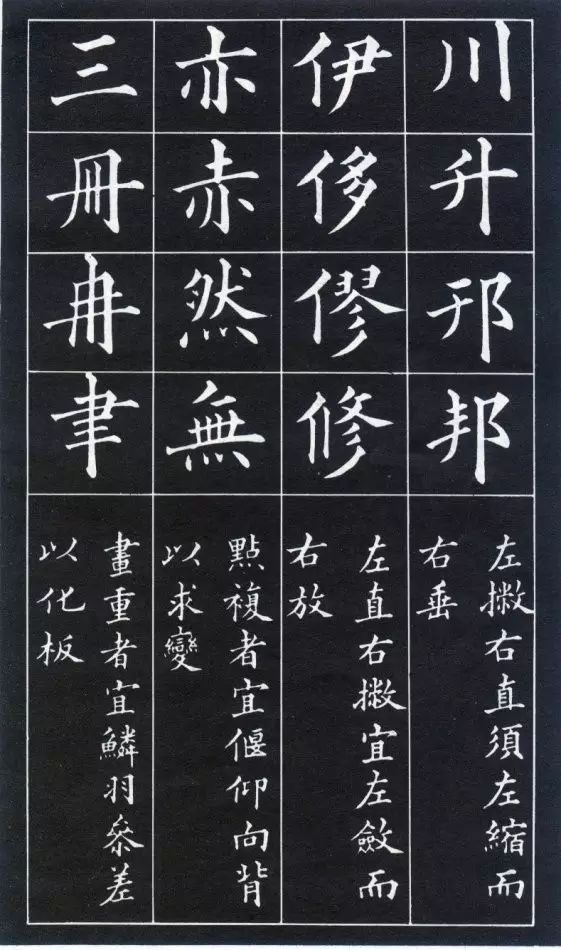 川
升
邘
邦
左撇右直須左縮而
右垂
伊
侈
僇
修
左直右撇宜左斂而
右放
亦
赤
然
無
點複者宜偃仰向背
以求變
三
冊
冉
聿
畫重者宜鱗羽參差
以化板